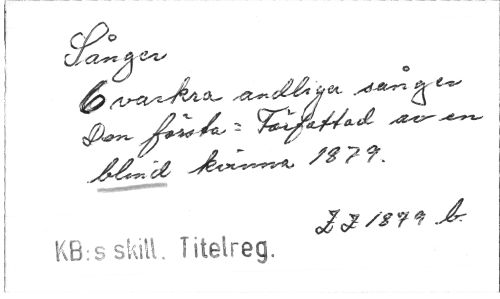 Sånger
6 vackra andliga sånger
Den första = Författad av en
blind kvinna 1879.
ZZ 1879 b.
KB:s skill. Titelreg.